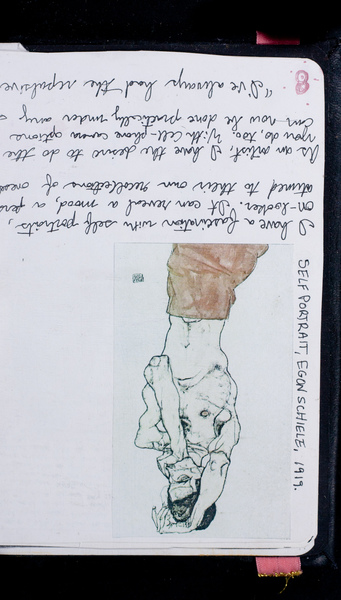 SELF PORTRAIT, EGON SCHIELE, 1919.
I have a fascination with self portraits,
on-looker. It can reveal a mood, a
attuned to their own recollections of
As an artist, I have the desire to do the
you do, too. With cell-phone camera options
can now be done practically under any
"I've always had the repulsive
8